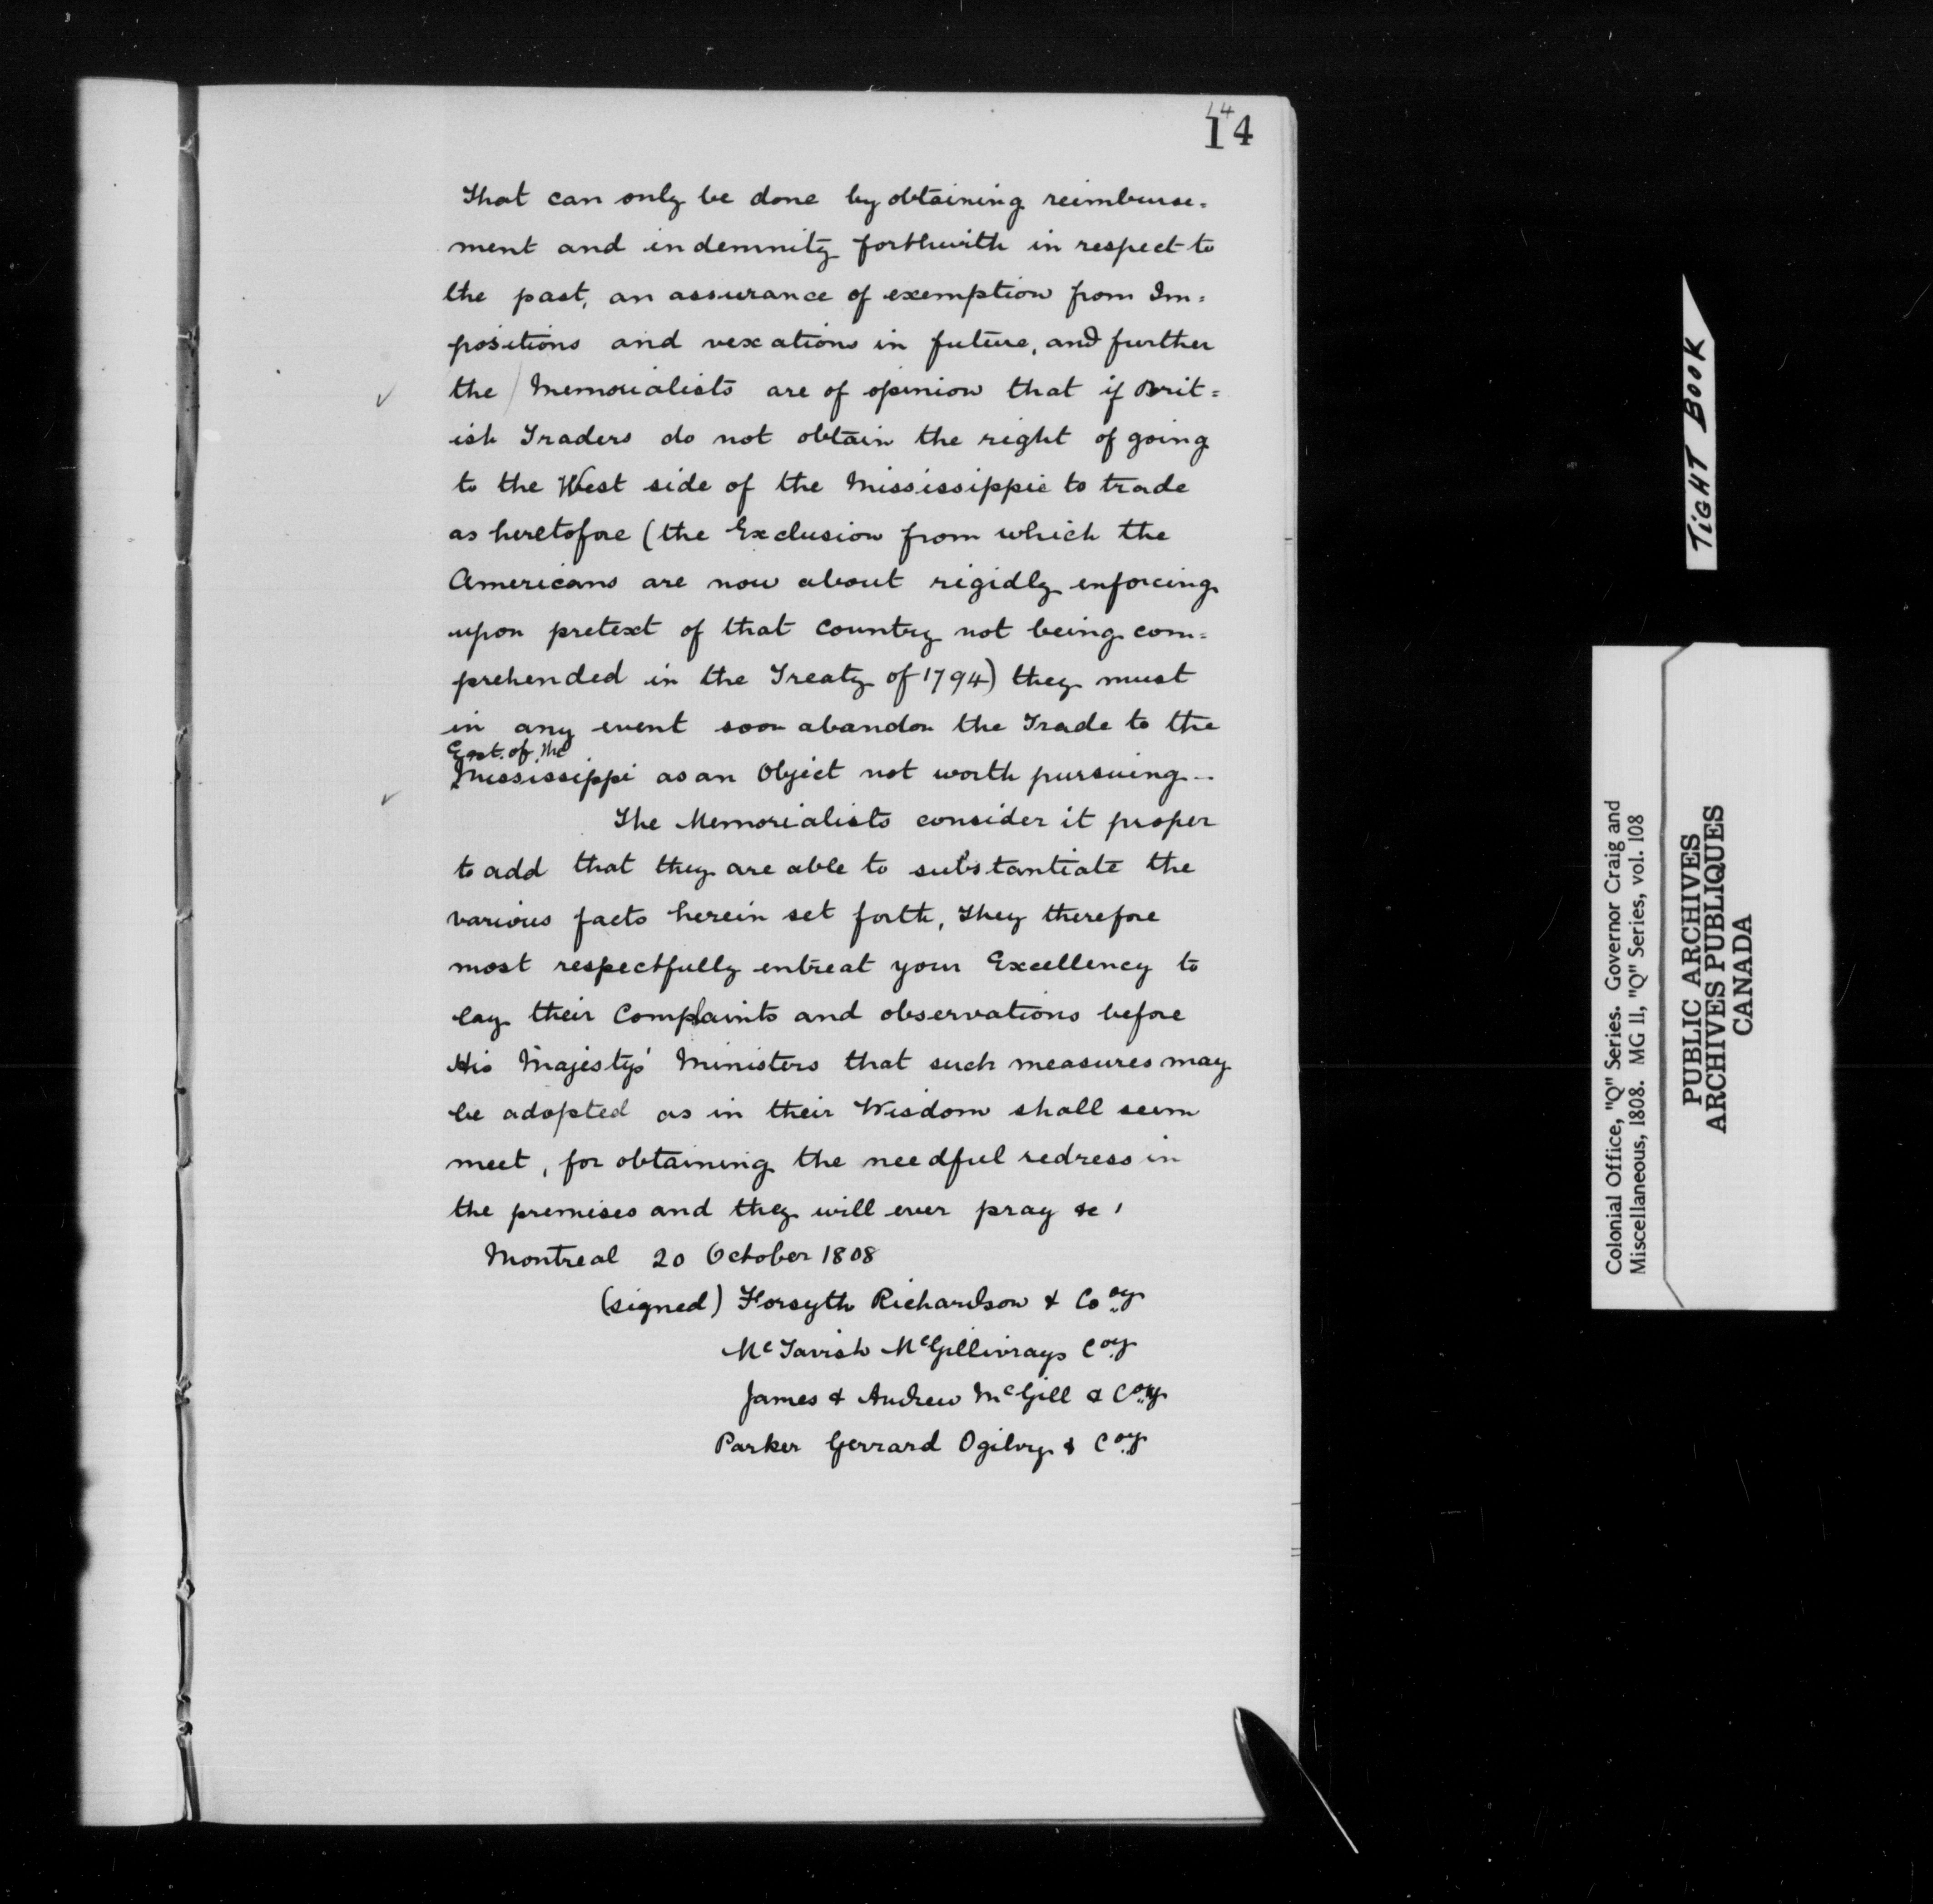 14
14
That can only be done by obtaining reimburse=
ment and indemnity forthwith in respect to
the past, an assurance of exemption from Im=
positions and vexations in future, and further
the Memorialists are of opinion that if Brit=
ish Traders do not obtain the right of going
to the West side of the Mississippie to trade
as heretofore (the Exclusion from which the
Americans are now about rigidly enforcing
upon pretext of that Country not being com=
prehended in the Treaty of 1794) they must
in any event soon abandon the Trade to the
East of the
Mississippi as an Object not worth pursuing --
The Memorialists consider it proper
to add that they are able to substantiate the
various facts herein set forth, They therefore
most respectfully entreat your Excellency to
lay their Complaints and observations before
His Majesty's Ministers that such measures may
be adopted as in their Wisdom shall seem
meet, for obtaining the needful redress in
the premises and they will ever pray &c,
Montreal 20 October 1808
(signed) Forsyth Richardson & Cooy
McTavish McGillivrays Coy
James & Andrew McGill & Coy
Parker Gerrard Ogilvy & Coy
TIGHT BOOK
Colonial Office, "Q" Series. Governor Craig and
Miscellaneous, 1808. MG 11, "Q" Series, vol. 108
PUBLIC ARCHIVES
ARCHIVES PUBLIQUES
CANADA